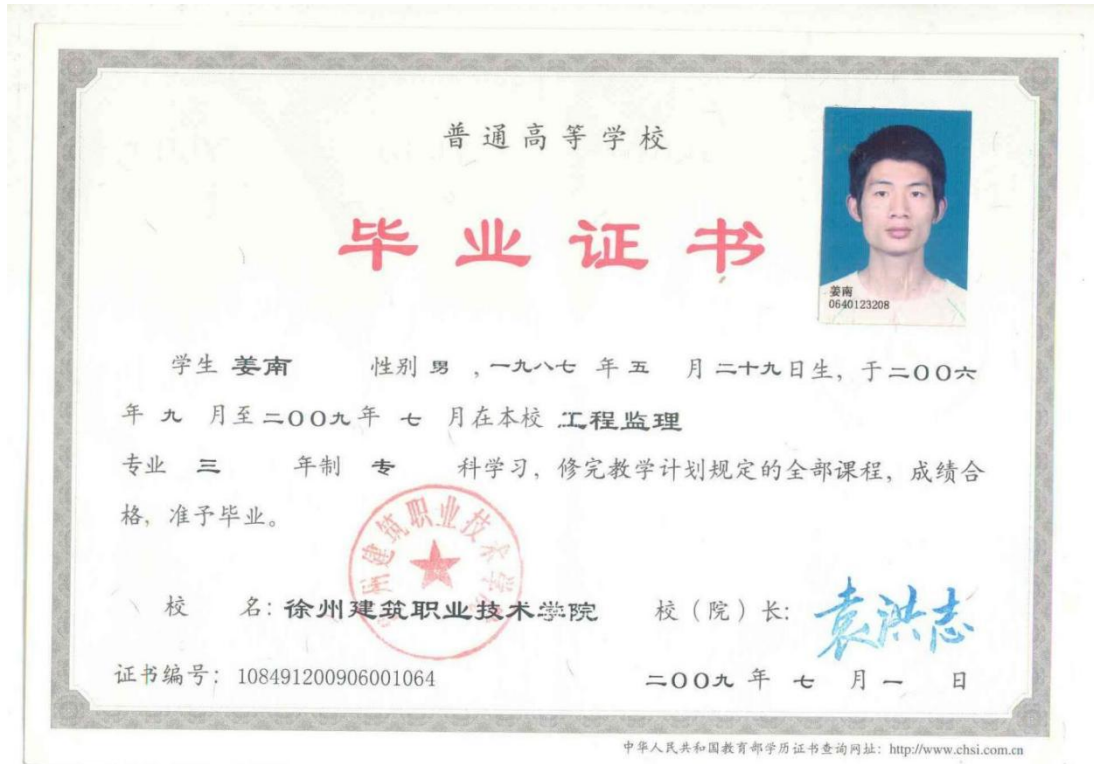 普通高等学校
毕业证书
姜南
0640123208
学生 姜南 性别 男 ，一九八七 年 五 月 二十九日生，于二〇〇六
年 九 月至 二〇〇九年 七 月在本校 工程监理
专业 三 年制 专 科学习，修完教学计划规定的全部课程，成绩合
格，准予毕业。
徐州建筑职业技术学院
校 名：徐州建筑职业技术学院 校（院）长：袁洪志
证书编号：108491200906001064 二〇〇九 年 七 月 一 日
中华人民共和国教育部学历证书查询网址：http://www.chsi.com.cn